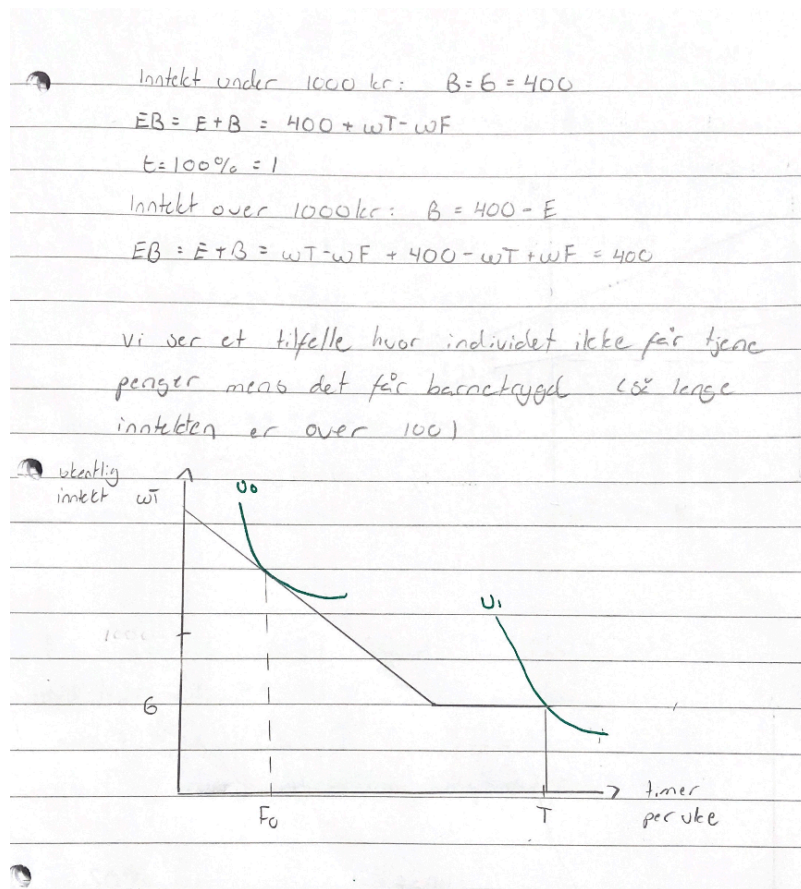 Inntekt under 1000 kr: B = G = 400
EB = E + B = 400 + wT - wF
t = 100% = 1
Inntekt over 1000kr: B = 400 - E
EB = E + B = wT - wF + 400 - wT + wF = 400
Vi ser et tilfelle hvor individet ikke får tjene
penger mens det får barnetrygd (så lenge
inntekten er over 100)
ukentlig
inntekt wT
U0
U1
G
F0
T
timer
per uke